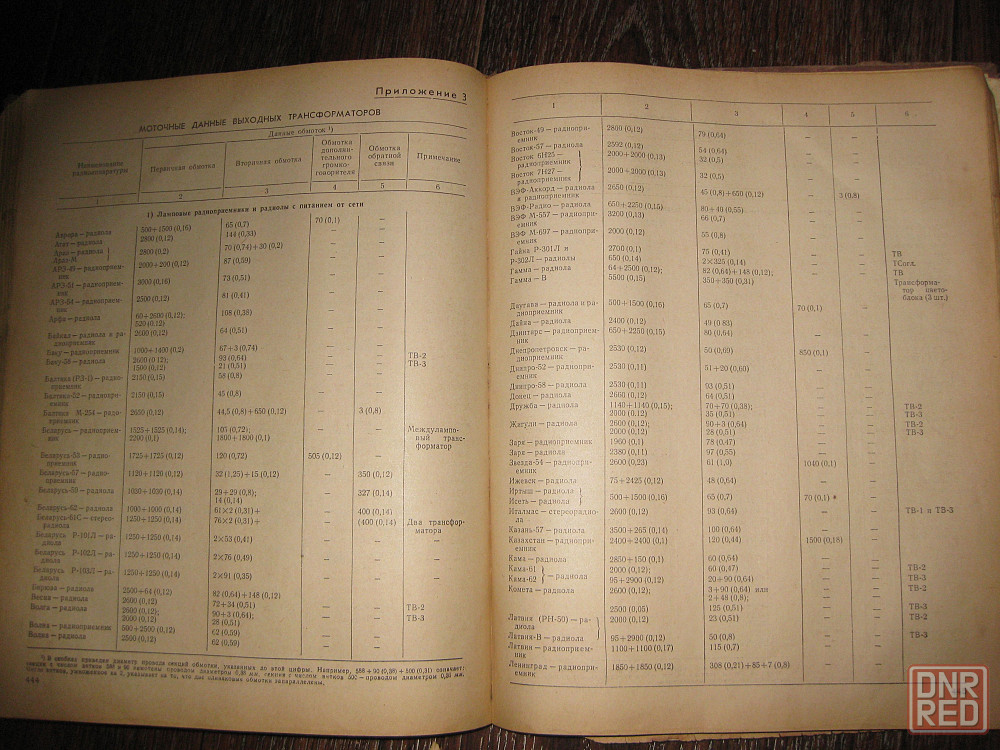 Приложение 3
МОТОЧНЫЕ ДАННЫЕ ВЫХОДНЫХ ТРАНСФОРМАТОРОВ
Данные обмоток ¹)
Наименование радиоаппаратуры Первичная обмотка Вторичная обмотка Обмотка дополнительного громкоговорителя Обмотка обратной связи Примечание
1 2 3 4 5 6
1) Ламповые радиоприемники и радиолы с питанием от сети
Аврора — радиола 500+1500 (0,16) 65 (0,7) 70 (0,1) —
Агат — радиола 2800 (0,12) 144 (0,33) — —
2800 (0,2) 70 (0,74)+30 (0,2) — —
АРЗ-49 — радиоприемник 2000+200 (0,12) 87 (0,59) — —
АРЗ-51 — радиоприемник 3000 (0,16) 73 (0,51) — —
АРЗ-54 — радиоприемник 2500 (0,12) 81 (0,41) — —
Арфа — радиола 60+2600 (0,12); 108 (0,38) — —
520 (0,12)
Байкал — радиола и радиоприемник 2600 (0,12) 64 (0,51) — —
Баку — радиоприемник 1000+1400 (0,2) 67+3 (0,74) — —
Баку-58 — радиола 2600 (0,12); 93 (0,64) — — ТВ-2
1500 (0,12) 21 (0,51) — — ТВ-3
Балтика (РЗ-1) — радиоприемник 2150 (0,15) 58 (0,8) — —
Балтика-52 — радиоприемник 2150 (0,15) 45 (0,8) — —
Балтика М-254 — радиоприемник 2650 (0,12) 44,5 (0,8)+650 (0,12) — 3 (0,8)
Беларусь — радиоприемник 1525+1525 (0,14); 103 (0,72); — — Междуламповый трансформатор
2200 (0,1) 1800+1800 (0,1)
Беларусь-53 — радиоприемник 1725+1725 (0,12) 120 (0,72) 505 (0,12) —
Беларусь-57 — радиоприемник 1120+1120 (0,12) 32 (1,25)+15 (0,12) — 350 (0,12)
Беларусь-59 — радиола 1030+1030 (0,14) 29+29 (0,8); — 327 (0,14)
14 (0,14)
Беларусь-62 — радиола 1000+1000 (0,14) 61×2 (0,31)+ — 400 (0,14)
Беларусь-61С — стереорадиола 1250+1250 (0,14) 76×2 (0,31)+ — (400 (0,14) Два трансформатора
Беларусь Р-101Л — радиола 1250+1250 (0,14) 2×53 (0,41) — — —
Беларусь Р-102Л — радиола 1250+1250 (0,14) 2×76 (0,49) — — —
Беларусь Р-103Л — радиола 1250+1250 (0,14) 2×91 (0,35) — — —
Бирюса — радиола 2500+64 (0,12) 82 (0,64)+148 (0,12) — —
Весна — радиола 2600 (0,12) 72+34 (0,51) — —
Волга — радиола 2600 (0,12); 90+3 (0,64); — — ТВ-2
2000 (0,12) 28 (0,51) — — ТВ-3
Волна — радиоприемник 500+2500 (0,12) 62 (0,59) — —
Волна — радиола 2560 (0,12) 62 (0,59) — —
444
1 2 3 4 5 6
Восток-49 — радиоприемник 2800 (0,12) 79 (0,64) — —
Восток-57 — радиола 2592 (0,12) 54 (0,64) — —
Восток 6Н25 — радиоприемник 2000+2000 (0,13) 32 (0,5) — —
Восток 7Н27 — радиоприемник 2000+2000 (0,13) 32 (0,5) — —
ВЭФ-Аккорд — радиола и радиоприемник 2650 (0,12) 45 (0,8)+650 (0,12) — 3 (0,8)
ВЭФ-Радио — радиола 650+2250 (0,15) 80+40 (0,55) — —
ВЭФ М-557 — радиоприемник 3200 (0,13) 66 (0,7) — —
ВЭФ М-697 — радиоприемник 2000 (0,12) 55 (0,8) — —
Гайна Р-301Л и 2700 (0,1) 75 (0,41) — — ТВ
Р-302Л — радиолы 650 (0,14) 2×325 (0,14) — — ТСогл.
Гамма — радиола 64+2500 (0,12); 82 (0,64)+148 (0,12); — — ТВ
Гамма — В 5500 (0,15) 350+350 (0,31) — — Трансформатор светоблока (3 шт.)
Даугава — радиола и радиоприемник 500+1500 (0,16) 65 (0,7) 70 (0,1) —
Дайна — радиола 2400 (0,12) 49 (0 83) — —
Дзинтарс — радиоприемник 650+2250 (0,15) 80 (0,64) — —
Днепропетровск — радиоприемник 2530 (0,12) 50 (0,69) 850 (0,1) —
Днипро-52 — радиоприемник 2530 (0,11) 51+20 (0,60) — —
Днипро-58 — радиола 2530 (0,11) 93 (0,51) — —
Донец — радиола 2660 (0,12) 64 (0,51) — —
Дружба — радиола 1140+1140 (0,15); 70+70 (0,38); — — ТВ-2
2000 (0,12) 35 (0,51) — — ТВ-3
Жигули — радиола 2600 (0,12); 90+3 (0,64) — — ТВ-2
2000 (0,12) 28 (0,51) — — ТВ-3
Заря — радиоприемник 1960 (0,1) 78 (0,47) — —
Заря — радиола 2380 (0,11) 97 (0,55) — —
Звезда-54 — радиоприемник 2600 (0,23) 61 (1,0) 1040 (0,1) —
Ижевск — радиола 75+2425 (0,12) 48 (0,64) — —
Иртыш — радиола
Исеть — радиола 500+1500 (0,16) 65 (0,7) 70 (0,1) —
Итальмас — стереорадиола 2600 (0,12) 93 (0,64) — — ТВ-1 и ТВ-3
Казань-57 — радиола 3500+265 (0,14) 100 (0,64) — —
Казахстан — радиоприемник 2400+2400 (0,1) 120 (0,44) 1500 (0,18) —
Кама — радиола 2850+150 (0,1) 60 (0,64) — —
Кама-61 2000 (0,12); 60 (0,47) — — ТВ-2
Кама-62 — радиола 95+2900 (0,12) 20+90 (0,64) — — ТВ-3
Комета — радиола 2600 (0,12); 3+90 (0,64) или — — ТВ-2
2+48 (0,8);
2500 (0,05) 125 (0,51) — — ТВ-3
Латвия (РН-50) — радиола 2000 (0,12) 23 (0,51) — — ТВ-2
Латвия-В — радиола 95+2900 (0,12) 50 (0,8) — — ТВ-3
Латвия — радиоприемник 1100+1100 (0,17) 115 (0,7) — —
Ленинград — радиоприемник 1850+1850 (0,12) 308 (0,21)+85+7 (0,8) — —
DNR
RED